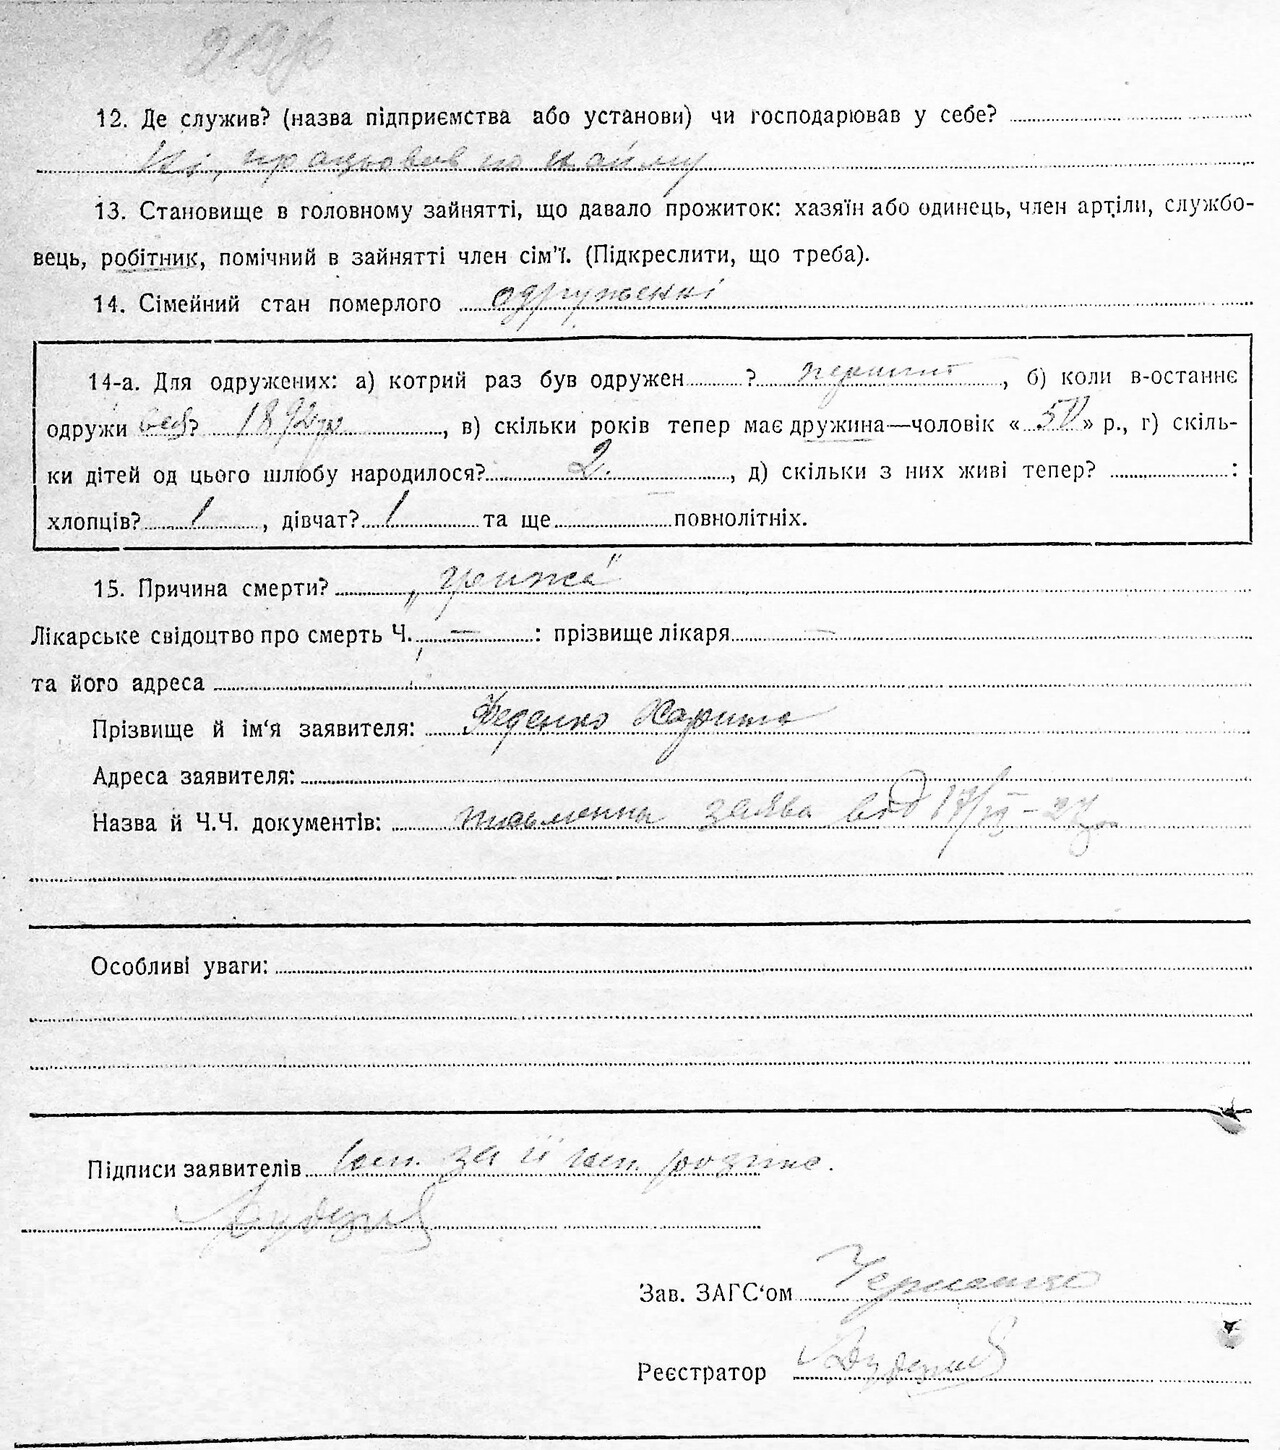 12. Де служив? (назва підприємства або установи) чи господарював у себе?
Ні, працював по найму
13. Становище в головному зайнятті, що давало прожиток: хазяїн або одинець, член артіли, службо-
вець, робітник, помічний в зайнятті член сім'ї. (Підкреслити, що треба).
14. Сімейний стан померлого одруженні
14-а. Для одружених: а) котрий раз був одружен ? перший, б) коли в-останнє
одружи вся? 1892 р, в) скільки років тепер має дружина—чоловік « 50 » р., г) скіль-
ки дітей од цього шлюбу народилося? 2., д) скільки з них живі тепер? :
хлопців? 1, дівчат? 1 та ще — повнолітніх.
15. Причина смерти? „грижа"
Лікарське свідоцтво про смерть Ч. — : прізвище лікаря —
та його адреса
Прізвище й ім'я заявителя: Феденко Харитина
Адреса заявителя:
Назва й Ч.Ч. документів: письменна заява від 17/III-27р
Особливі уваги:
Підписи заявителів за її
Зав. ЗАГС'ом Черненко
Реєстратор